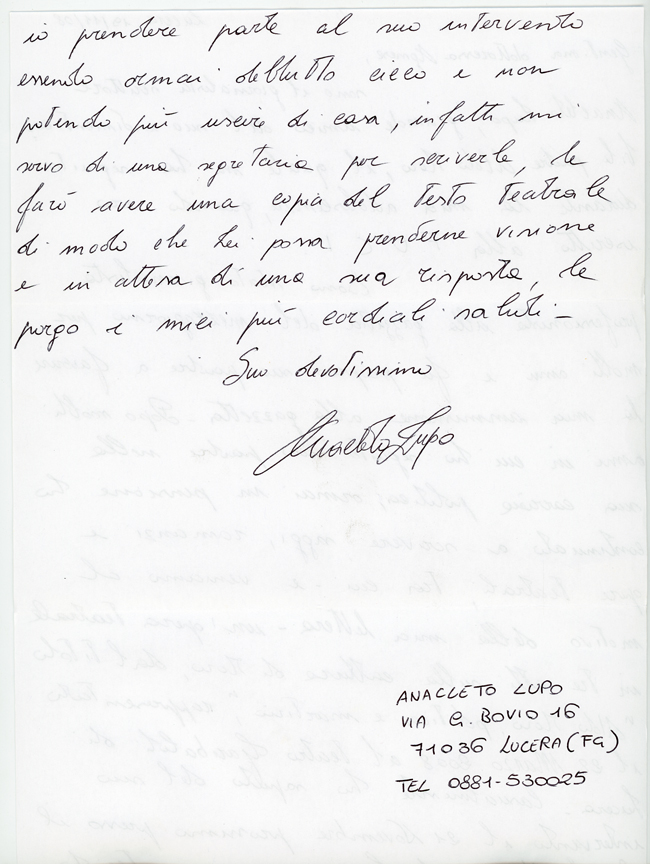 io prendere parte al suo intervento
essendo ormai deltutto cieco e non
potendo più uscire di casa, infatti mi
servo di una segretaria per scriverle, le
farò avere una copia del Testo Teatrale
di modo che Lei possa prenderne visione
e in attesa di una sua risposta, le
porgo i miei più cordiali saluti -
Suo devotissimo
Anacleto Lupo
ANACLETO LUPO
VIA G. BOVIO 16
71036 LUCERA (FG)
TEL 0881-530025